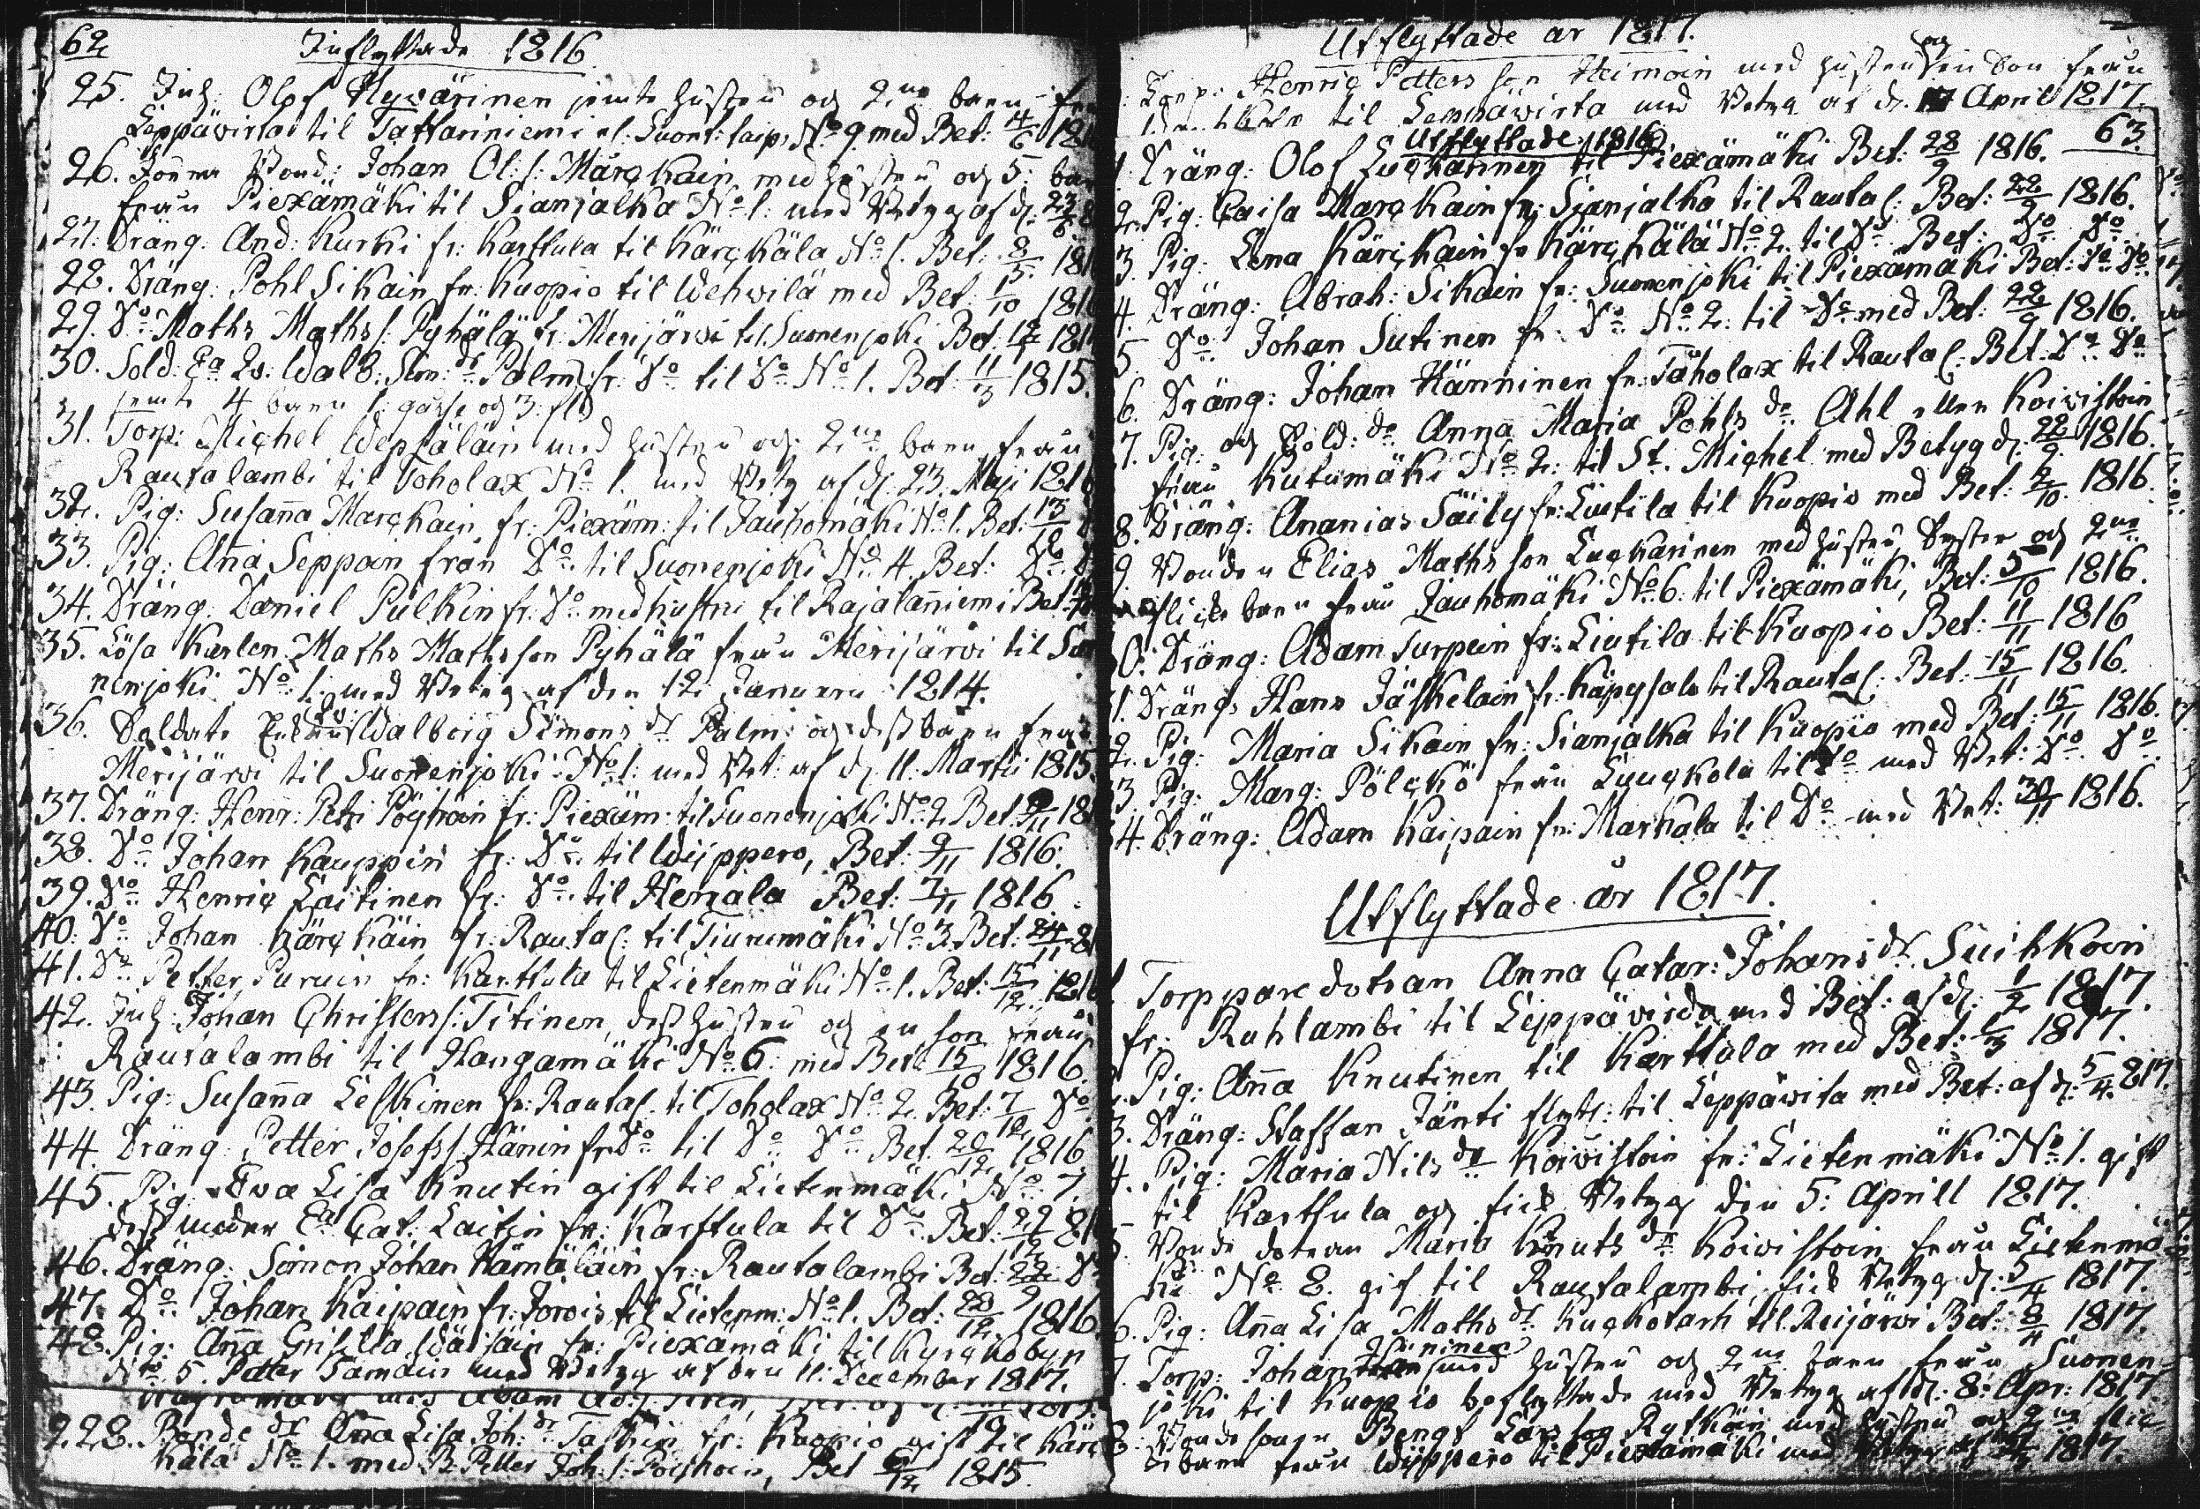 62
Inflyttade 1816
25. Inh: Olof Hyvärinen jemte hustru och 2ne barn fr
Leppäwirta til Tattariniemi el. Suont: laip: No 9 med Bet: 4/6 181
26. Bond: Johan Ol: s: Marckain med hustru och 5: bar
från Piexämäki til Sianjalka No 1: med Betyg af d: 23/6
27. Dräng: And: Kurki fr: Karttula til Kärckälä No 1. Bet: 8/ 181
28. Dräng: Pohl Sikain fr: Kuopio til Wehwilä med Bet: /10 181
29. Do Maths Maths s: Pyhälä fr: Merijärwi til Suonenjoki Bet: 12/1 181
30. Sold: Ea Walb: Sim: dr Palm fr: Do til Do No 1. Bet 11/3 1815.
jemte 4 barn 1: gosse och 3: fl:
31. Torp: Michel Wepsäläin med hustru och 2ne barn från
Rautalambi til Toholax No 1. med Betyg af d: 23. Maji 1816
32. Pig: Susana Marckain fr: Piexäm: til Jauhomäki No 1. Bet: 13/10
33. Pig: Ana Seppain från Do til Suonenjoki No 4. Bet: Do
34. Dräng: Daniel Pulkin fr: Do med hustru til Rajalaniemi Bet:
35. Lösa Karlen Maths Mathsson Pyhälä från Merijärwi til Suo
nenjoki No 1: med Betyg af den 12 Januari 1814.
36. Soldats Enkan Walborg Simons dr Palm och dess barn från
Merijärwi til Suonenjoki No 1: med Bet: af d: 11. Martii 1815
37. Dräng: Henr: Petr: Pöyhöin fr: Piexäm: til Suonenjoki No 2. Bet: /11 181
38. Do Johan Kauppin fr: Do til Wijppero, Bet: 9/11 1816.
39. Do Henric Laitinen fr: Do til Herrala Bet: 7/11 1816
40. Do Johan Kärckäin fr: Rautal: til Tiurumäki No 3. Bet: 24/11 181
41. Do Petter Puruin fr: Karttula til Lietenmäki No 1. Bet: 15/12 1816
42. Inh: Johan Christerss: Titinen, dess hustru och en son från
Rautalambi til Hangamäki No 6: med Bet: 15/10 1816.
43. Pig: Susana Leskinen fr: Rautal: til Toholax No 2. Bet: 7/10 Do
44. Dräng: Petter Josefss: Hänin fr: Do til Do Do Bet. 20/12 1816
45. Pig: Eva Lisa Knutin gift til Lietenmäki No 7.
dess moder Ea Cat: Laitin fr: Karttula til Do Bet: 22/12 81
46. Dräng: Simon Johan Hämäläin fr: Rautalambi Bet: 22/9 Do
47. Do Johan Kaipain fr: Jorois til Lietenm: No 1. Bet: 28/12 1816
48. Pig: Ana Grisilla Wäisäin fr: Piexämäki til Kyrckobyn
No 5. Petter Tamain med Betyg af den 11. December 1817.
228. Bonde dr Ana Lisa Joh: dr Taskin fr: Kuopio gift til Kärc
kälä No 1. med B. Petter Joh: s: Pöyhöin, Bet /12 1815.
Utflyttade år 1817.
Torp: Henric Petters son Heimoin med hustru och en Son från
til Leppäwirta med Betyg af d: April 1817.
Utflyttade 1816
63.
1. Dräng: Olof Luckarinen til Piexämäki Bet: 28/9 1816.
2. Pig: Caisa Marckain fr: Sianjalka til Rautal: Bet: 22/9 1816.
3. Pig: Lena Kärckäin fr: Kärckälä No 2. til Do Bet: Do Do
4. Dräng: Abrah: Sikain fr: Suonenjoki til Piexämäki Bet: Do Do
5. Do Johan Sutinen fr: Do No 2: til Do med Bet: 22/9 1816.
6. Dräng: Johan Hänninen fr: Toholax til Rautal: Bet Do Do
7. Pig: och Sold: dr Anna Maria Pohls dr Ahl eller Koiwistoin
från Kutumäki No 2: til St. Michel med Betyg d: 22/9 1816.
8. Dräng: Ananias Säily fr: Liutila til Kuopio med Bet: 2/10. 1816.
9. Bonden Elias Maths son Luckarinen med hustru, Syster och 2ne
flicke barn från Jauhomäki No 6: til Piexämäki, Bet: 5/10 1816.
10. Dräng: Adam Turpein fr: Liutila til Kuopio Bet: 11/11 1816
11. Dräng: Hans Jäskelain fr: Käpysalo til Rautal: Bet: 15/11 1816.
12. Pig: Maria Sikain fr: Sianjalka til Kuopio med Bet: 15/11 1816.
13. Pig: Marg: Pölckö från Luuckola til Do med Bet: Do Do
14. Dräng: Adam Kaipain fr: Markala til Do med Bet: 30/11 1816.
Utflyttade år 1817.
1. Torppare dotran Anna Catar: Johans dr Suihkoin
fr: Ruhlambi til Leppäwirda med Bet: af d: 1/2 1817.
2. Pig: Ana Knutinen til Karttula med Bet: 1/3 1817.
3. Dräng: Staffan Jänti flytt: til Leppäwirta med Bet: af d: 5/4 817.
4. Pig: Maria Nils dr Koiwistoin fr: Lietenmäki No 1. gift
til Karttula och fick Betyg den 5: Aprill 1817.
5. Bonde dotran Maria Knuts dr Koiwistoin från Lietenmä
ki No 8. gift til Rautalambi, fick Betyg d: 5/4 1817.
6. Pig: Ana Lisa Maths dr Kuckotarh til Reijärwi Bet: 8/4 1817.
7. Torp: Johan Häninen med hustru och 2ne barn från Suonen
joki til Kuopio boflyttade med Betyg af d: 8: Apr: 1817
8. Bonde sonen Bengt Lars son Rytkön med hustru och 2ne flic
kebarn från Wijppero til Piexämäki med 1817.